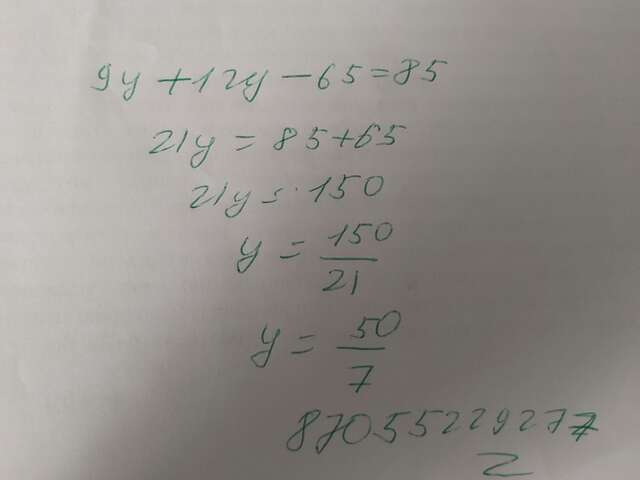 9y + 12y - 65 = 85
21y = 85 + 65
21y = 150
y = 150/21
y = 50/7
87055229277
Z